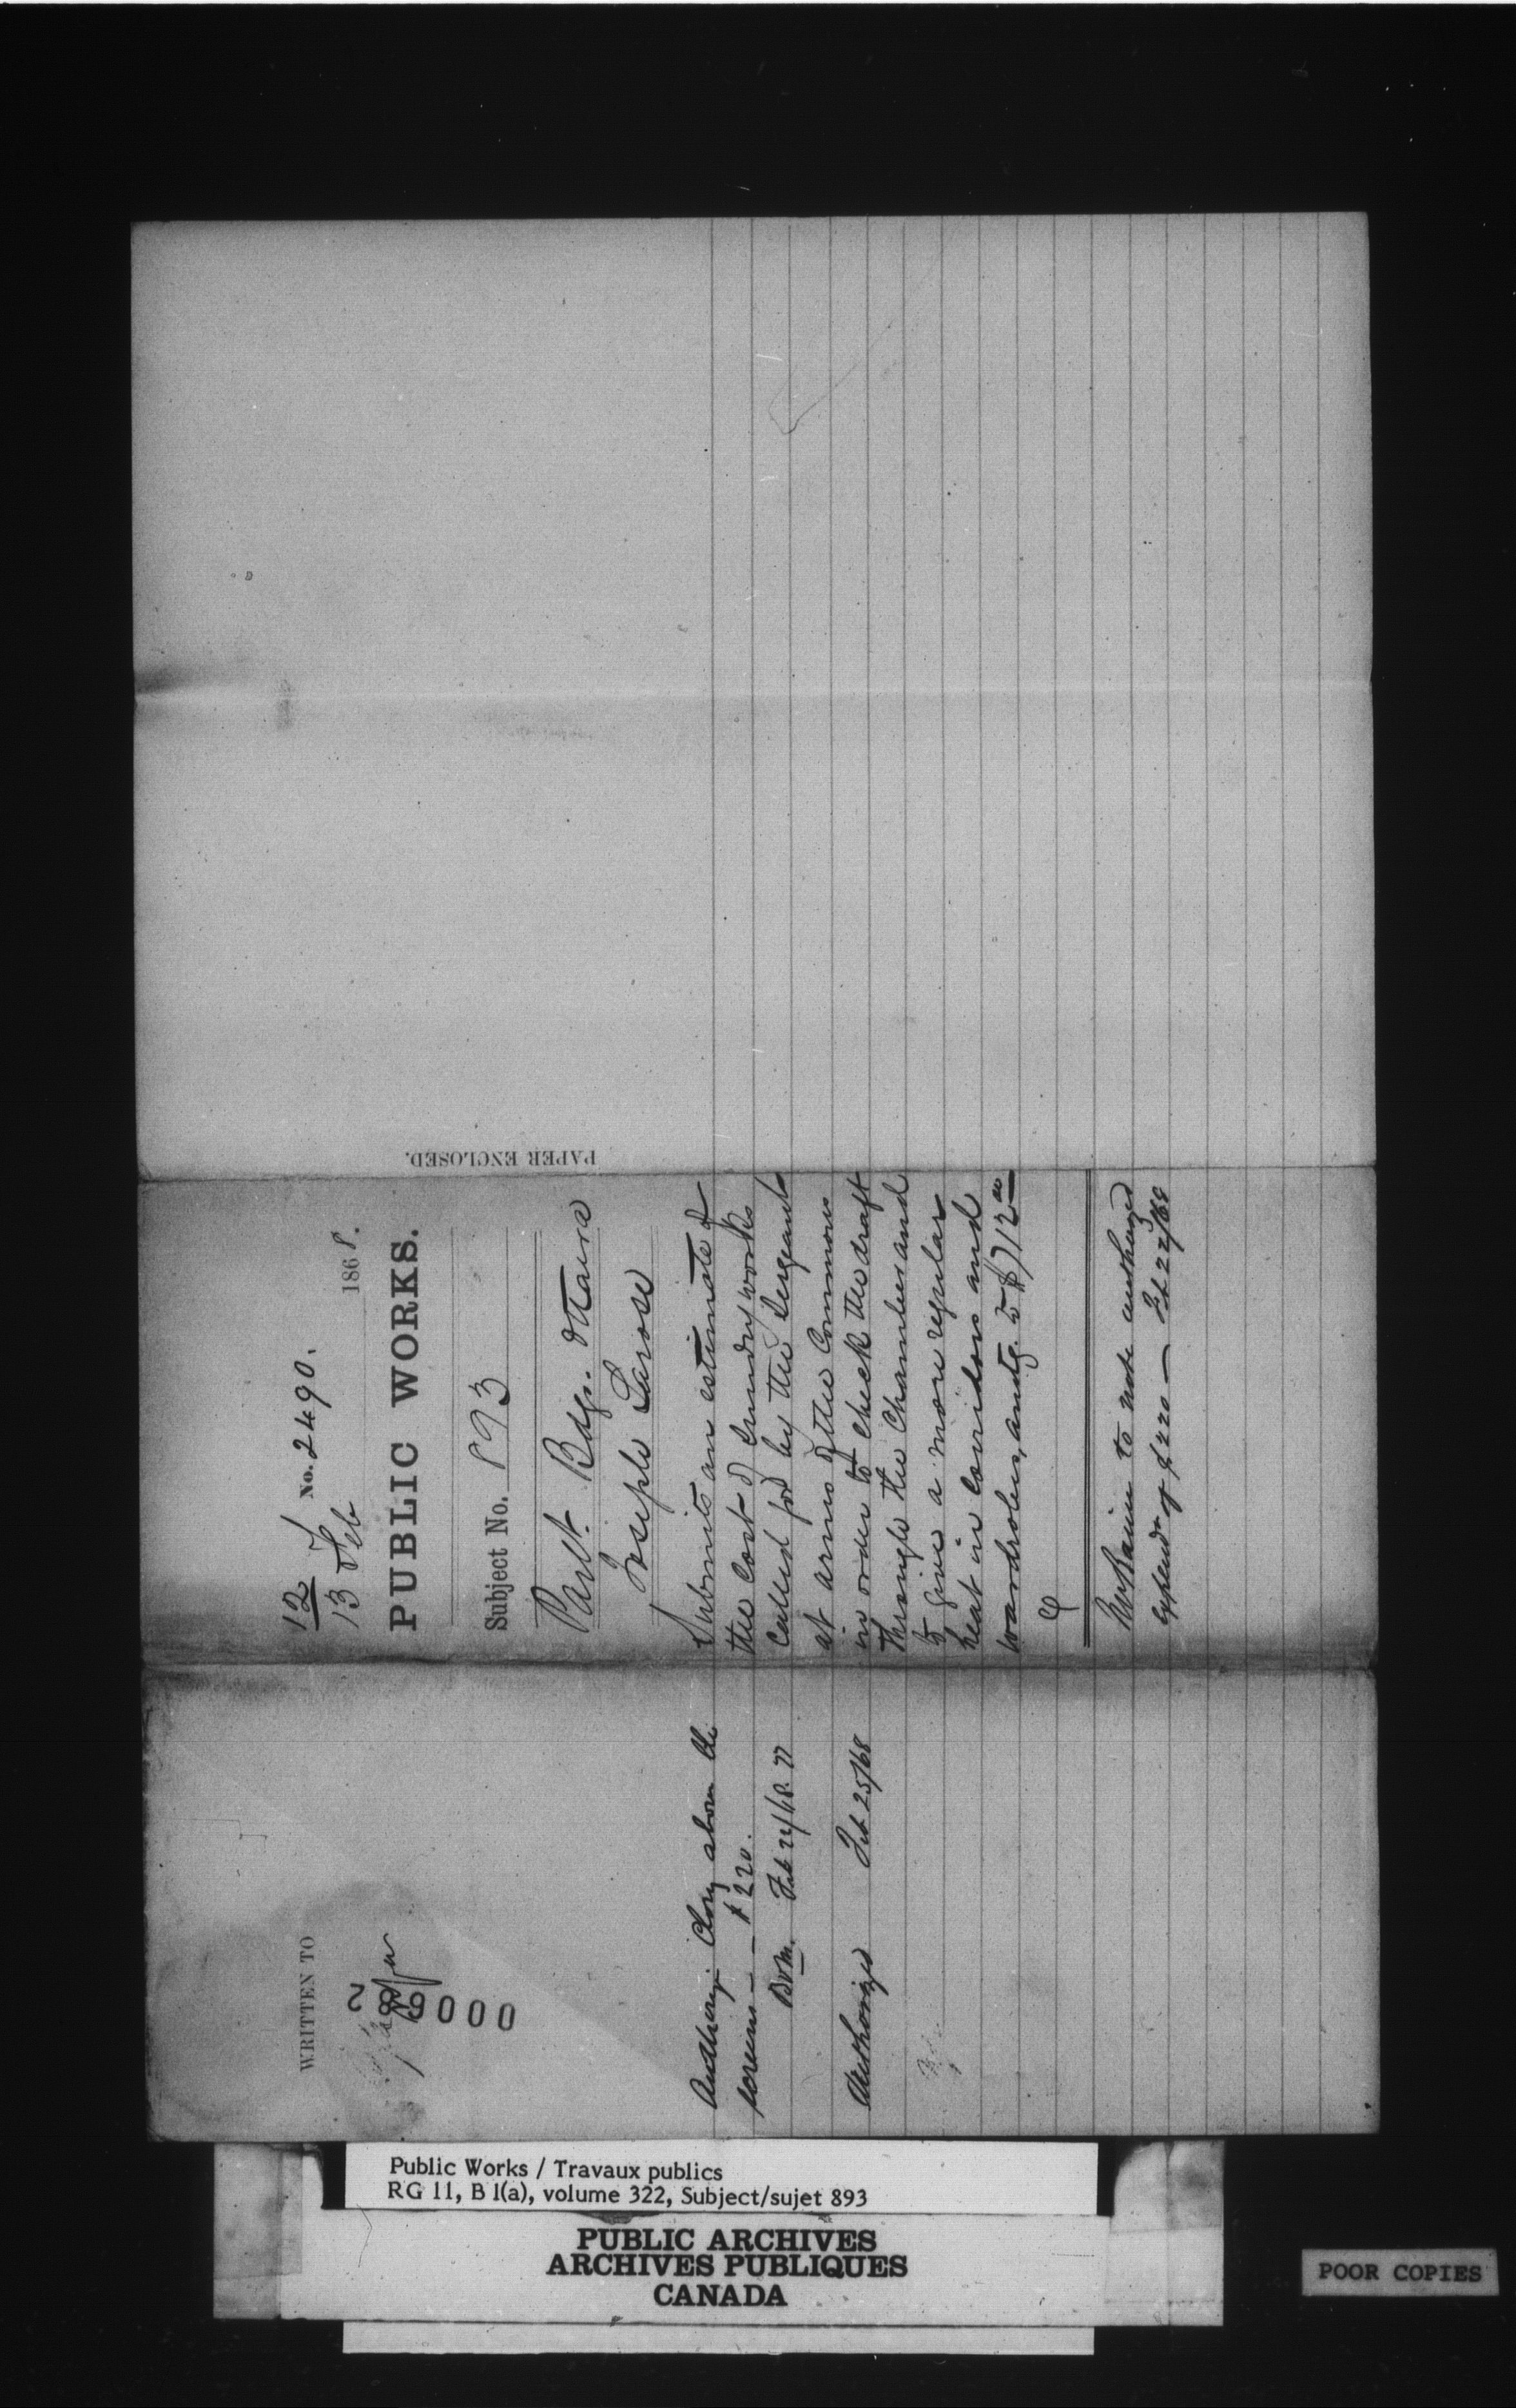 12
13 Feb
No. 2490.
1868.
PUBLIC WORKS.
Subject No. 893
Parlt. Bdgs. Ottawa
Joseph Larose
Submits an estimate of
the cost of sundry works
called for by the Sergeant
at arms of the Commons
in order to check the draft
through the Chamber and
to give a more regular
heat in corridors and
wardrobes, amtg. to $712.00
Mr Baine to note authorized
expendr of $220 — Feb 22/68
PAPER ENCLOSED.
WRITTEN TO
000
Authorize Clong above the
screens — $220.
Feb 24/68.
Authorized Feb 25/68
Public Works / Travaux publics
RG 11, B 1(a), volume 322, Subject/sujet 893
PUBLIC ARCHIVES
ARCHIVES PUBLIQUES
CANADA
POOR COPIES